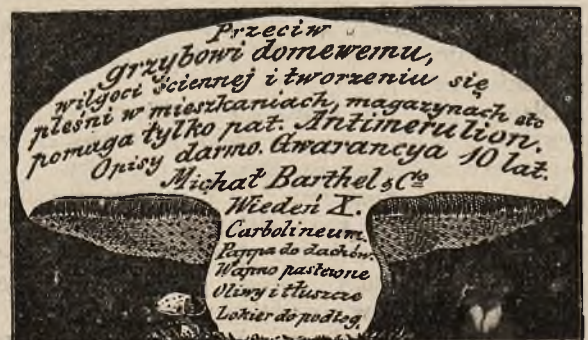 Przeciw
grzybowi domewemu,
wilgoci ściennej i tworzeniu się
pleśni w mieszkaniach, magazynach etc
pomaga tylko pat. Antimerulion.
Opisy darmo. Gwarancya 10 lat.
Michał Barthel & Co
Wiedeń X.
Carbolineum.
Pappa do dachów.
Wapno pastewne
Oliwy i tłuszcze
Lakier do podłog.